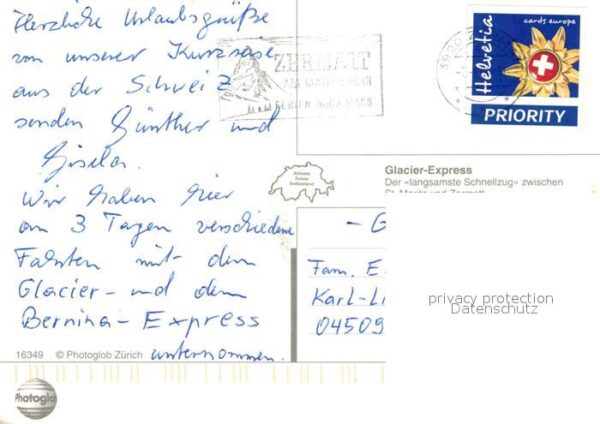 Herzliche Urlaubsgrüße
von unserer Kurzreise
aus der Schweiz
senden Günther und
Gisela.
Wir haben hier
an 3 Tagen verschiedene
Fahrten mit dem
Glacier- und dem
Bernina-Express
unternommen.
16349 © Photoglob Zürich
Photoglob
ZERMATT
AM MATTERHORN
Helvetia
cards europe
PRIORITY
Schweiz
Suisse
Switzerland
Glacier-Express
Der «langsamste Schnellzug» zwischen
St. Moritz und Zermatt
- G
Fam. E
Karl-Li
04509
privacy protection
Datenschutz